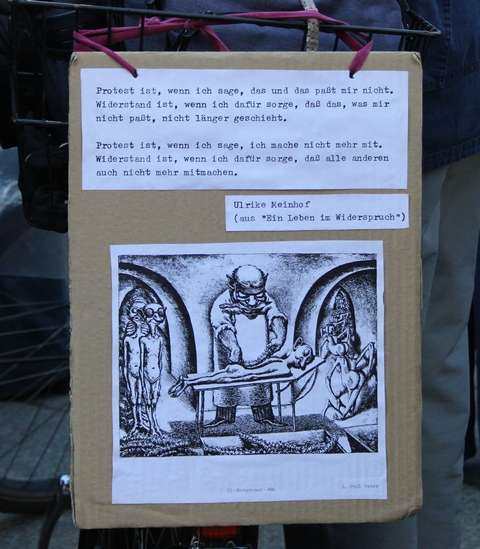 Protest ist, wenn ich sage, das und das paßt mir nicht.
Widerstand ist, wenn ich dafür sorge, daß das, was mir
nicht paßt, nicht länger geschieht.
Protest ist, wenn ich sage, ich mache nicht mehr mit.
Widerstand ist, wenn ich dafür sorge, daß alle anderen
auch nicht mehr mitmachen.
Ulrike Meinhof
(aus "Ein Leben im Widerspruch")
A. Paul Weber